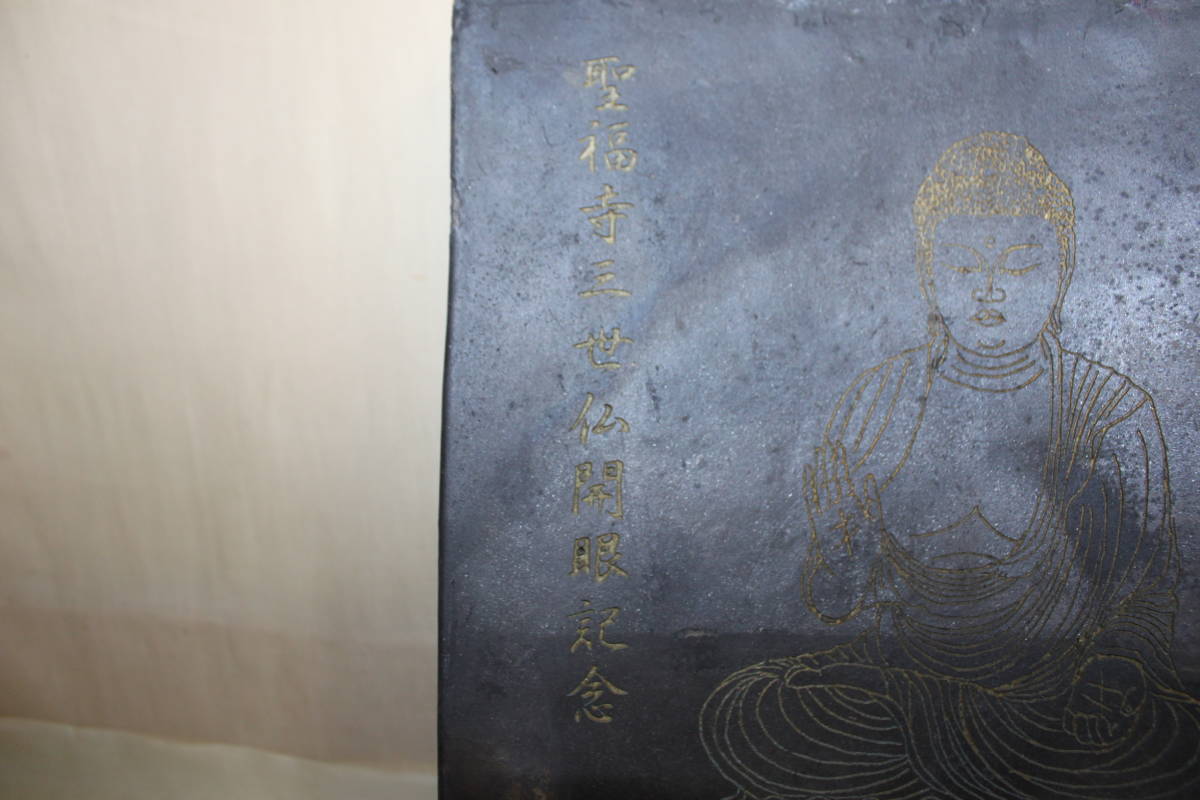 聖福寺三世仏開眼記念